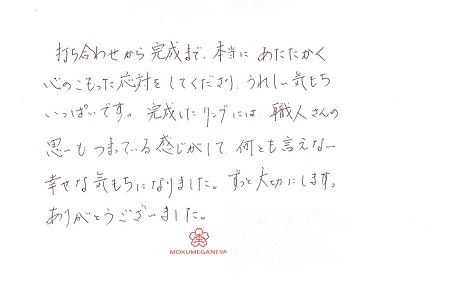 打ち合わせから完成まで、本当にあたたかく
心のこもった応対をしてくださり、うれしい気もち
いっぱいです。完成したリングには、職人さんの
思いもつまっている感じがして、何とも言えない
幸せな気もちになりました。ずっと大切にします。
ありがとうございました。
MOKUMEGANEYA